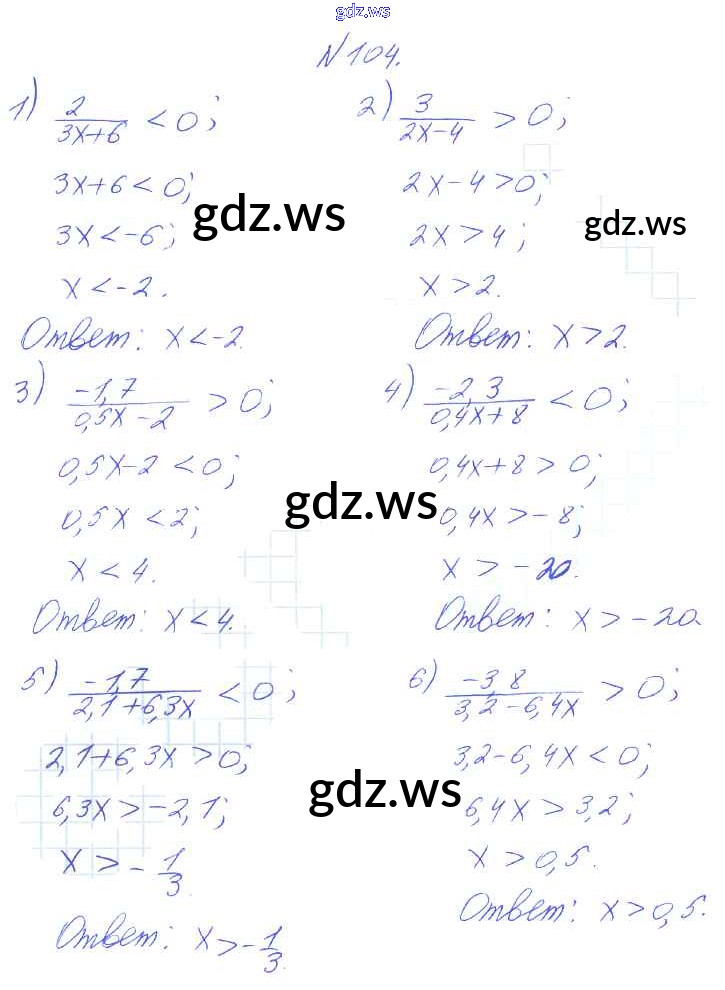 gdz.ws
№104.
1) 2/(3x+6) < 0;
3x+6 < 0;
3x < -6;
x < -2.
Ответ: x < -2.
2) 3/(2x-4) > 0;
2x-4 > 0;
2x > 4;
x > 2.
Ответ: x > 2.
gdz.ws
gdz.ws
3) -1,7/(0,5x-2) > 0;
0,5x-2 < 0;
0,5x < 2;
x < 4.
Ответ: x < 4.
4) -2,3/(0,4x+8) < 0;
0,4x+8 > 0;
0,4x > -8;
x > -20.
Ответ: x > -20.
gdz.ws
5) -1,7/(2,1+6,3x) < 0;
2,1+6,3x > 0;
6,3x > -2,1;
x > -1/3.
Ответ: x > -1/3.
6) -3,8/(3,2-6,4x) > 0;
3,2-6,4x < 0;
6,4x > 3,2;
x > 0,5.
Ответ: x > 0,5.
gdz.ws